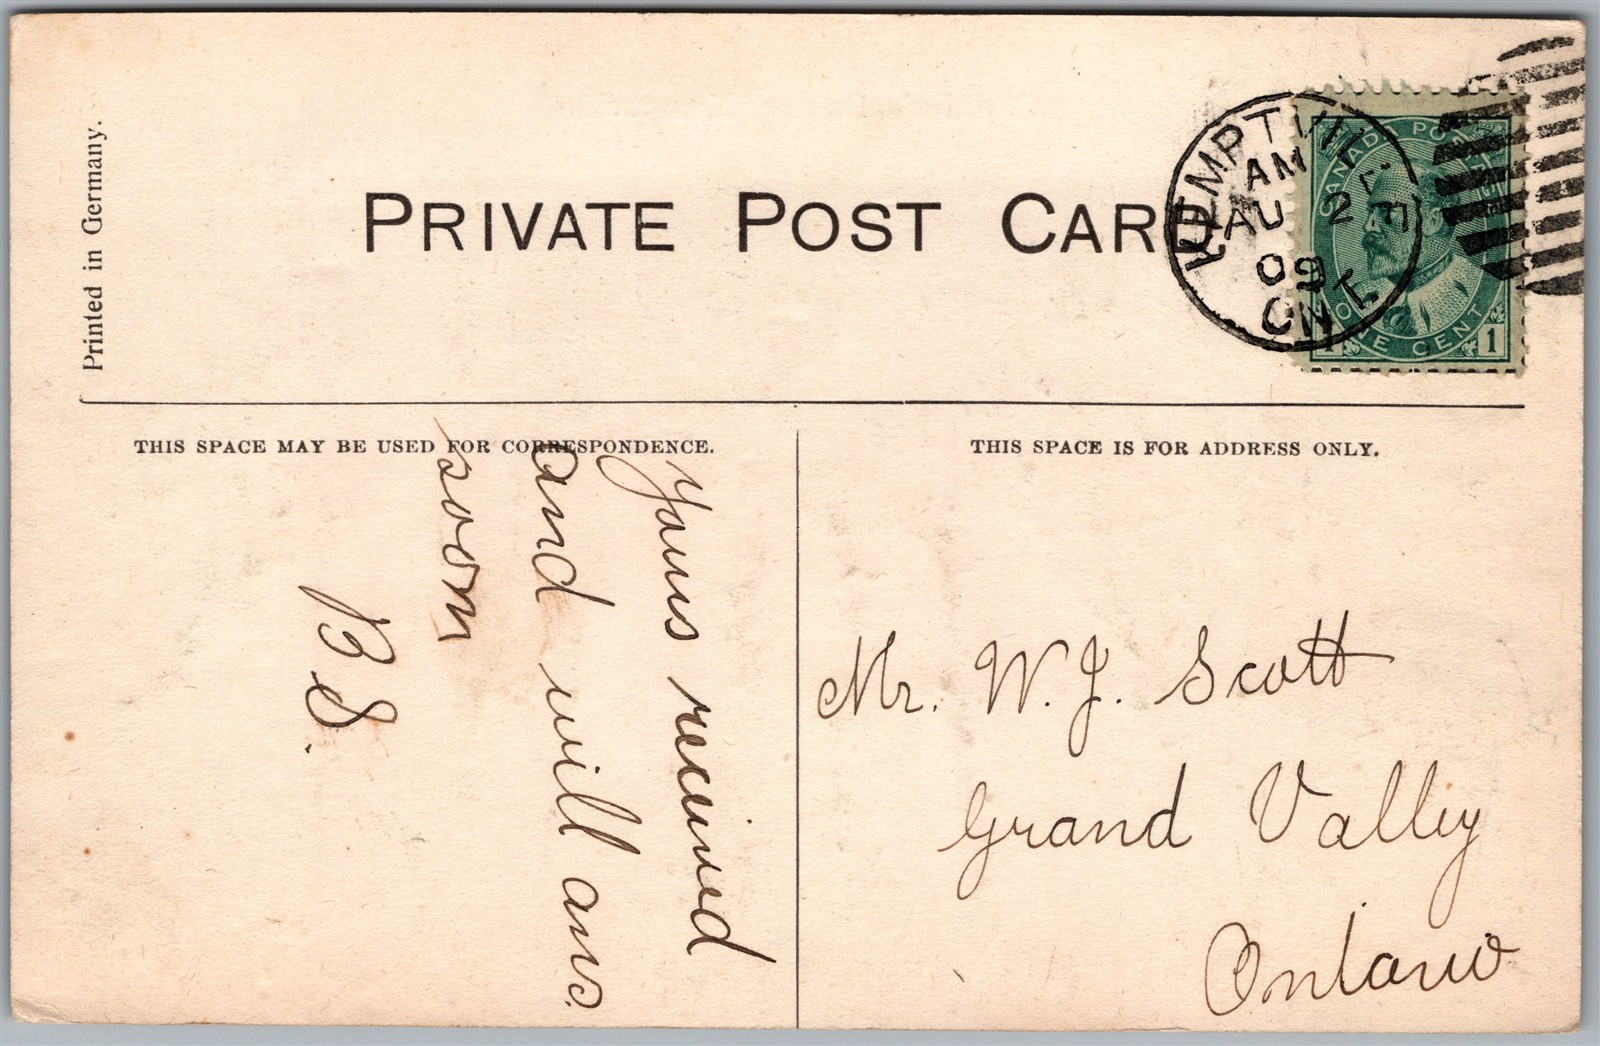 Printed in Germany.
PRIVATE POST CARD
KEMPTVILLE
AM
AU 2
09
ONT.
CANADA POSTAGE
ONE CENT
1 1
THIS SPACE MAY BE USED FOR CORRESPONDENCE.
Yours received
and will ans.
soon
B S.
THIS SPACE IS FOR ADDRESS ONLY.
Mr. W. J. Scott
Grand Valley
Ontario